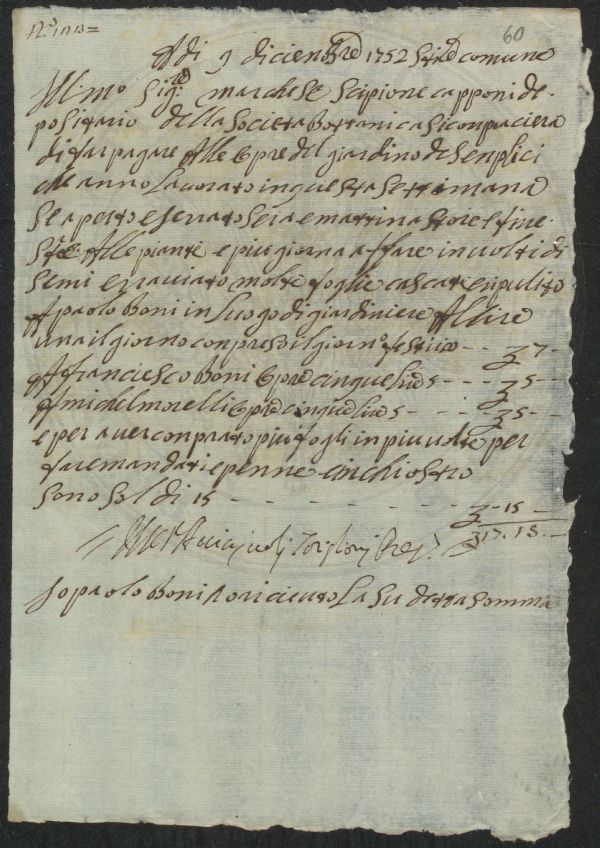 60
A di 9 dicienbre 1752 Stile comune
Ill:mo Sig:re marchese Scipione capponi de-
positario della Societa Bottanica si conpaciera
di far pagare Alle Opre del giardino de Senplici
che anno Lavorato in questa Settimana
Se aperto e serato Sera e mattina Store e fine-
stre Alle piante e piu giornate a ffare involti di
Semi e stacciato molte foglie cascate e ripulito
A paolo Boni in Luogo di giardiniere A Lire
una il giorno conpreso il giorno festivo -- 7 -
A franciesco Boni Opre cinque Lire 5 --- 5 --
A michel morelli Opre cinque Lire 5 - - - 5 --
e per aver conprato piu fogli in piu volte per
fare mandati e penne e inchiostro
Sono Soldi 15 - - - - - - -- 15 -
17. 15. -
Io paolo Boni o riceuto La Su detta Somma